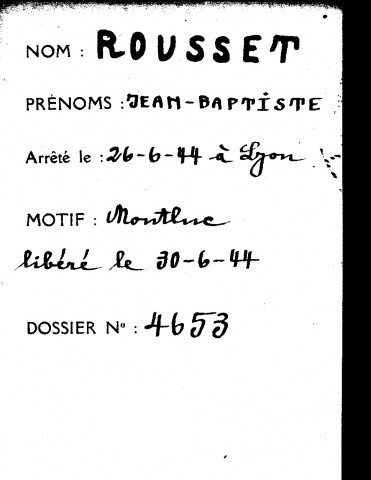 NOM : ROUSSET
PRÉNOMS : JEAN-BAPTISTE
Arrêté le : 26-6-44 à Lyon
MOTIF : Montluc
libéré le 30-6-44
DOSSIER Nº : 4653